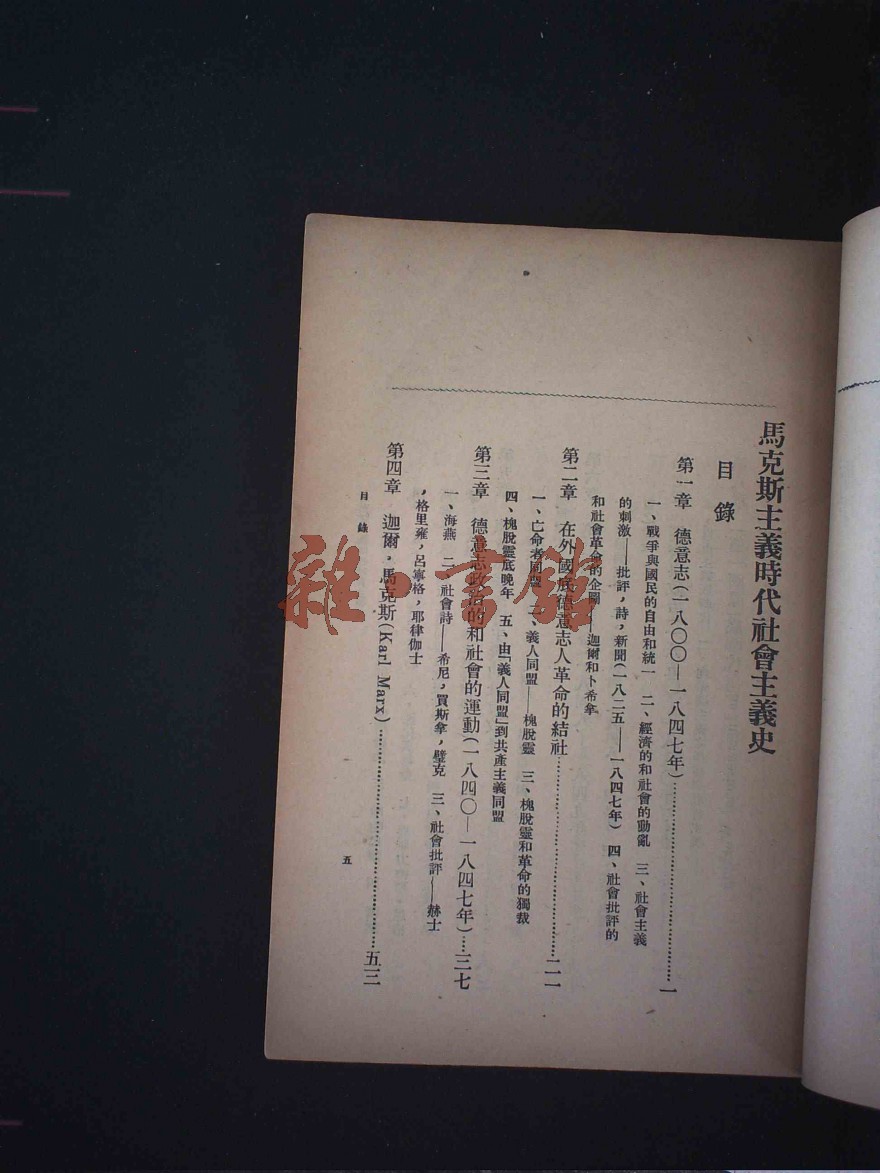 馬克斯主義時代社會主義史
目錄
第一章　德意志（一八〇〇—一八四七年）……一
一、戰爭與國民的自由和統一　二、經濟的和社會的動亂　三、社會主義
的刺激——批評，詩，新聞（一八二五——一八四七年）　四、社會批評的
和社會革命的企圖——迦爾和卜希拿
第二章　在外國底德意志人革命的結社……二一
一、亡命者同盟　二、義人同盟——槐脫靈　三、槐脫靈和革命的獨裁
四、槐脫靈底晚年　五、由「義人同盟」到共產主義同盟
第三章　德意志政治的和社會的運動（一八四〇—一八四七年）……三七
一、海燕　二、社會詩——希尼，買斯拿，璧克　三、社會批評——赫士
，格里雍，呂寧格，耶律伽士
第四章　迦爾，馬克斯（Karl Marx）……五三
目錄
五
雜·書館